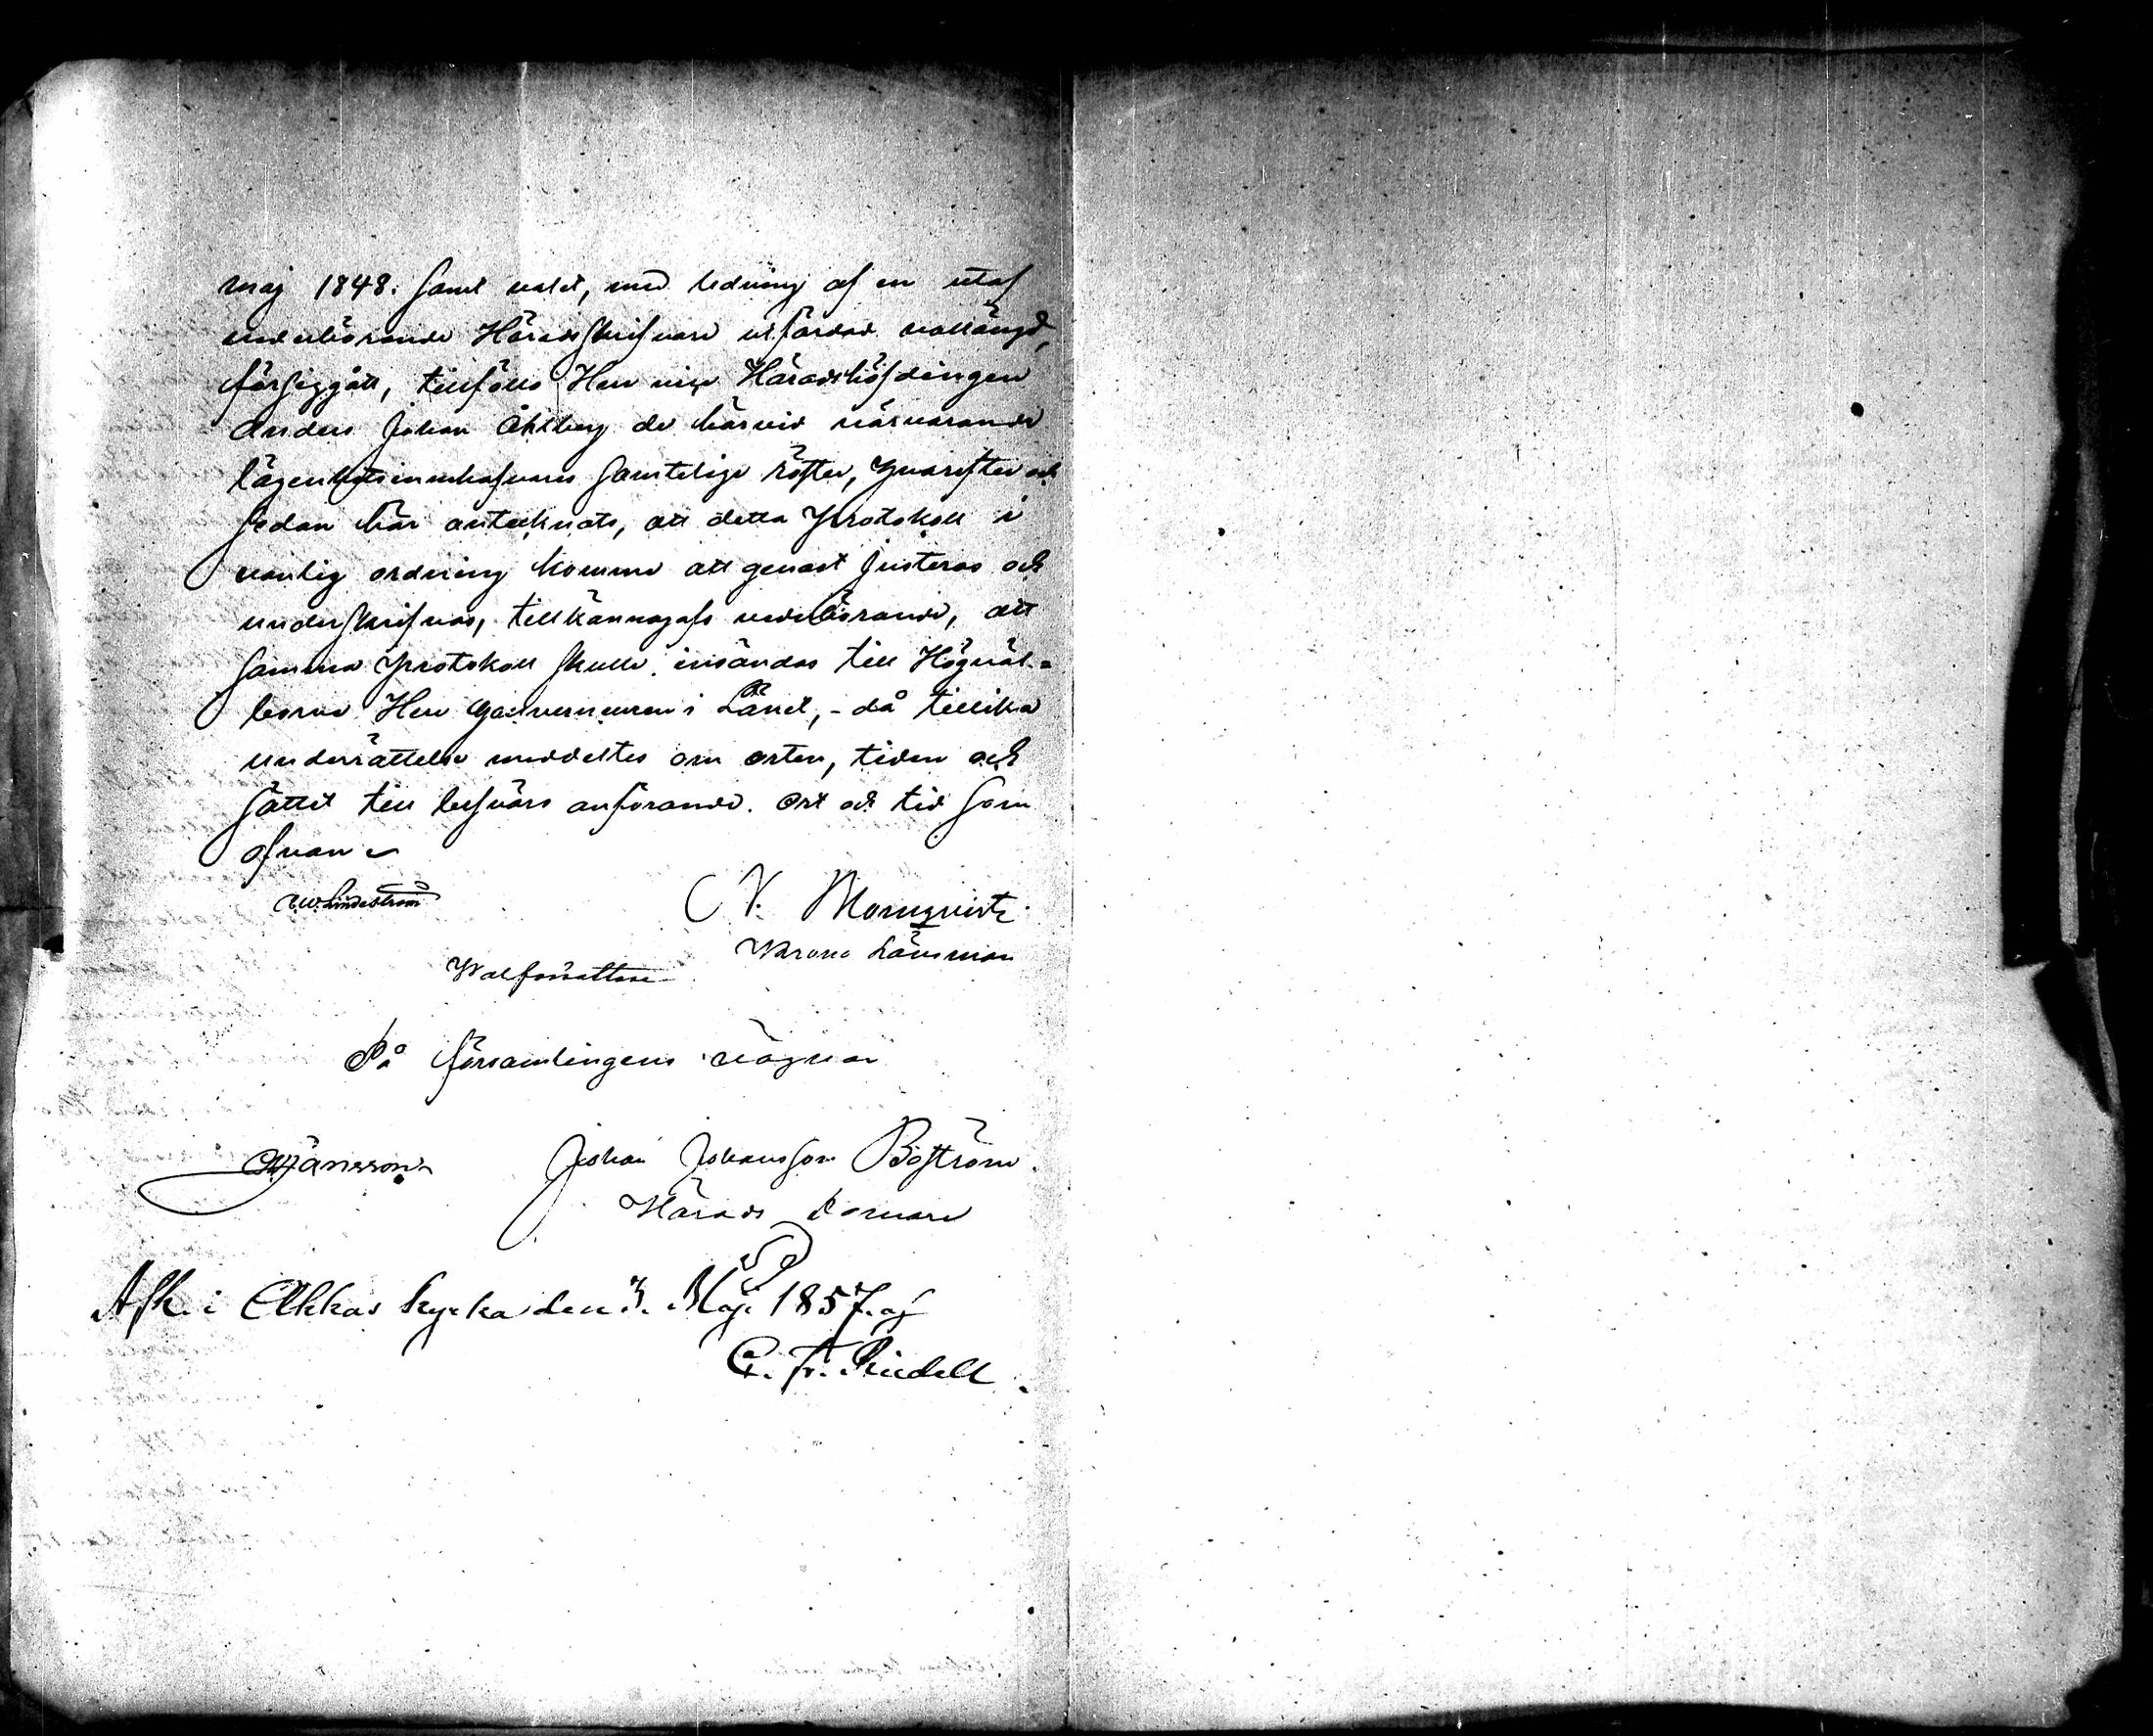 maj 1848. samt valet, med ledning af en utaf
vederbörande Häradsskrifvare utfärdad vallängd,
försiggått, tillföllo Herr vice Häradshöfdingen
Anders Johan Åhlberg de härvid närvarande
lägenhetsinnehafvares samtelige röster, Hvarefter och
sedan här antecknats, att detta Protokoll i
vanlig ordning komme att genast justeras och
underskrifvas, tillkännagafs vederbörande, att
samma Protokoll skulle insändas till Högväl-
borne Herr Gouverneuren i Länet, - då tillika
underrättelse meddeltes om orten, tiden och
sättet till besvärs anförande. Ort och tid som
ofvan
C.W. Lindeström
V. Blomqvist
Krono Länsman
Walförrättare
På församlingens vägnar
Jansson
Johan Johansson Boström
Härads Domare
Afk. i Ekkas kyrka den 3. Maji 1857. af
C. Fr. Riedell